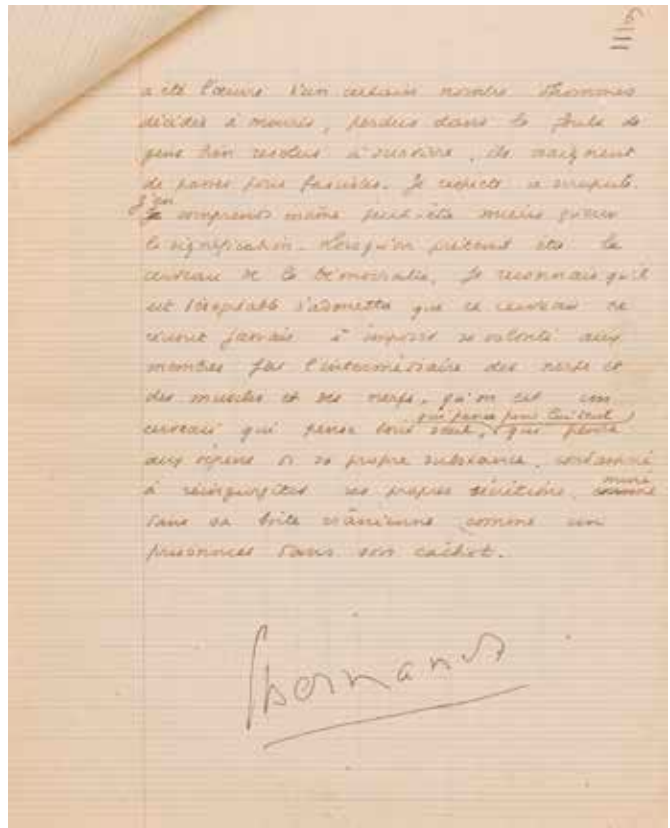 6
a été l'œuvre d'un certain nombre d'hommes
décidés à mourir, perdus dans la foule de
gens bien résolus à survivre, ils craignent
de passer pour fascistes. Je respecte ce scrupule.
J'en
Je comprends même peut-être mieux qu'eux
la signification. Lorsqu'on prétend être le
cerveau de la Démocratie, je reconnais qu'il
est désagréable d'admettre que ce cerveau ne
réussit jamais à imposer sa volonté aux
membres par l'intermédiaire des nerfs et
des muscles et des nerfs, qu'on est un
qui pense pour lui seul
cerveau qui pense tout seul, qui pense
aux dépens de sa propre substance, condamné
à réingurgiter ses propres sécrétions,
muré
comme
dans sa boîte crânienne comme un
prisonnier dans son cachot.
GBernanos